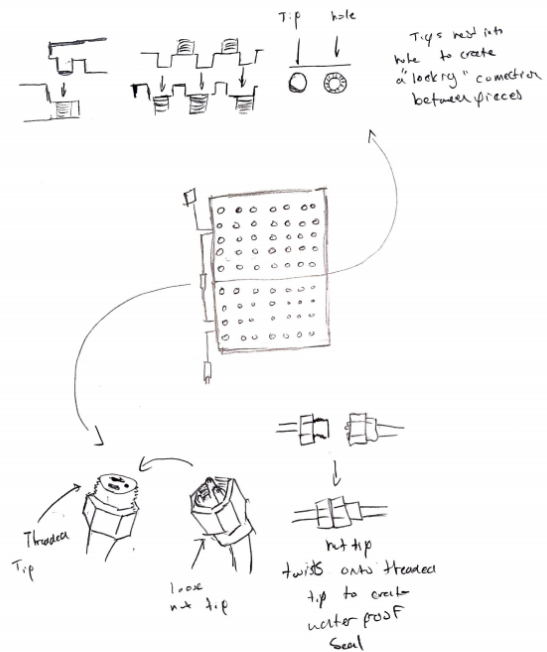 Tip hole
Tips nest into
hole to create
a "locking" connection
between pieces
Threaded
Tip
loose
nut tip
nut tip
twists onto threaded
tip to create
water proof
seal